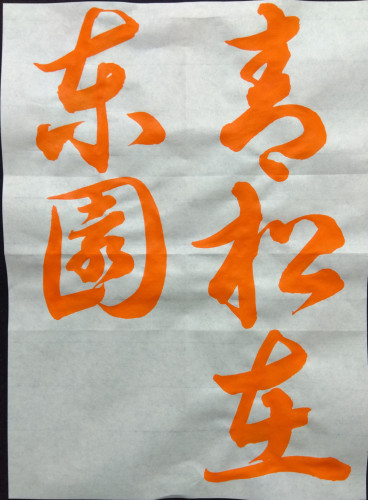 青松在
东園